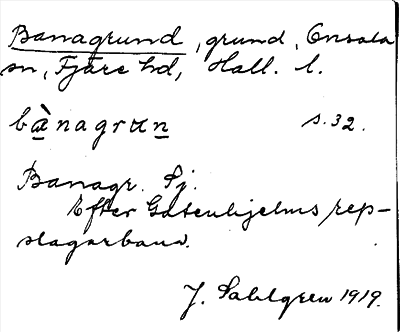 Banagrund, grund, Onsala
sn, Fjäre hd, Hall. l.
bànagrun s. 32.
Banagr. Sj.
Efter Gatenhjelms rep-
slagarbana.
J. Sahlgren 1919.